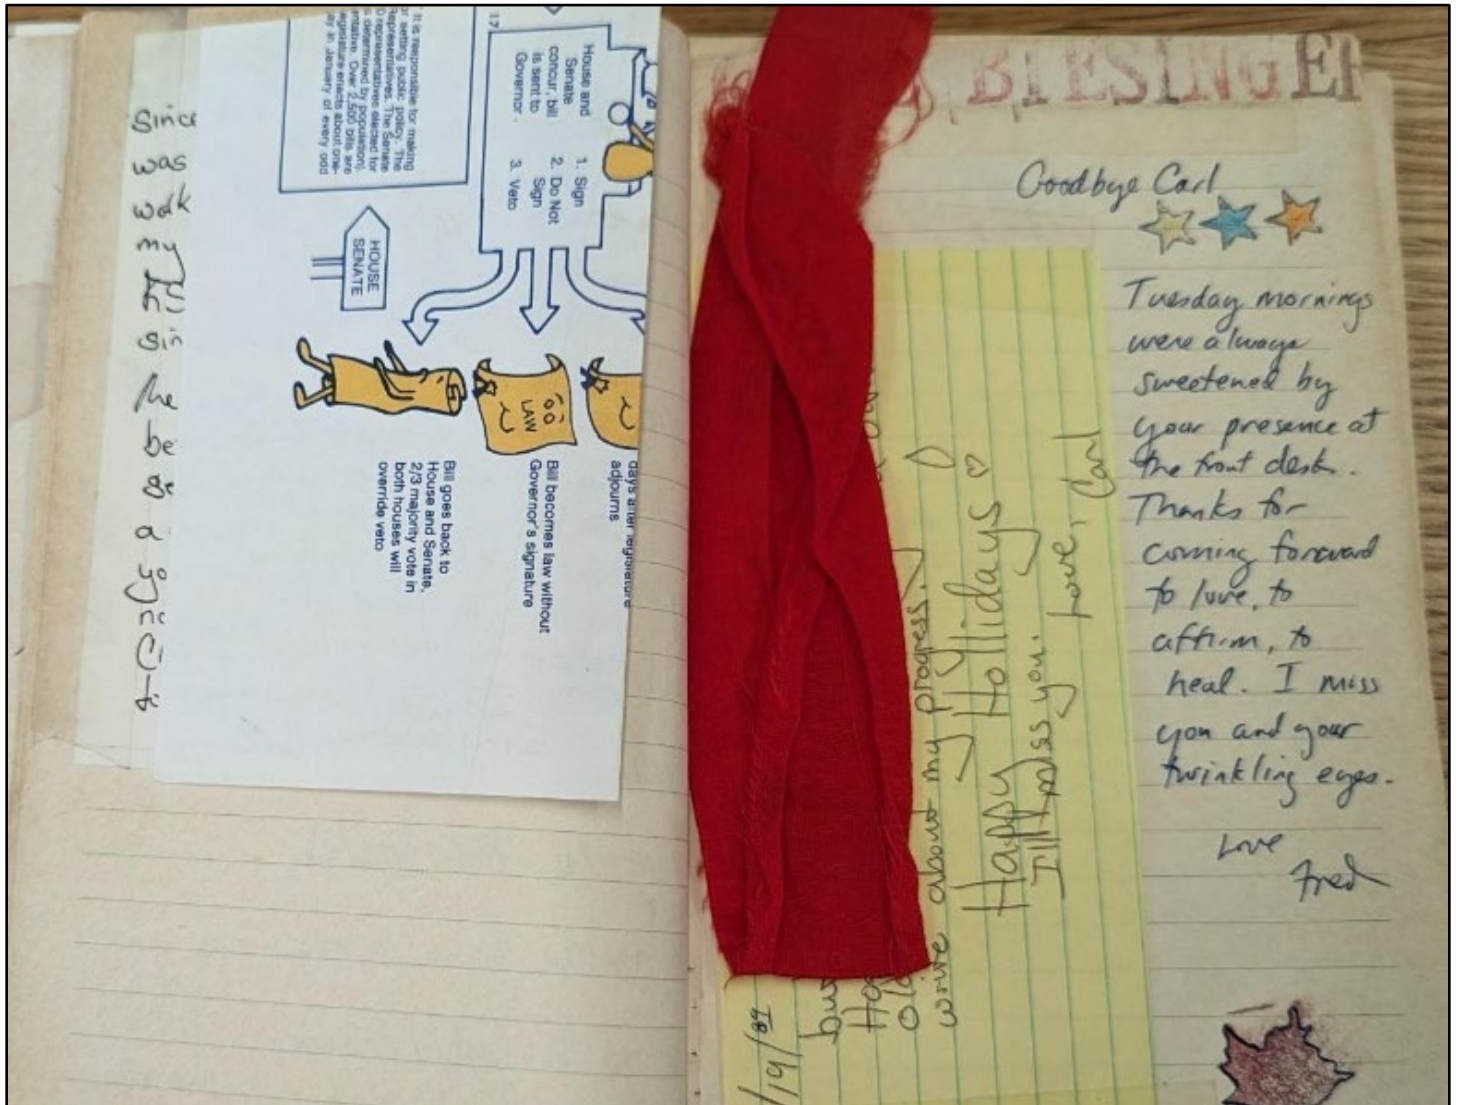 Since
was
work
my
sin
he
be
of
a
It is responsible for making
or setting public policy. The
Representatives. The Senate
0 representatives elected for
s determined by population).
entative. Over 2,500 bills are
egislature enacts about one-
ay in January of every odd
17
House and
Senate
concur, bill
is sent to
Governor.
1. Sign
2. Do Not
Sign
3. Veto
HOUSE
SENATE
LAW
days after legislature
adjourns
Bill becomes law without
Governor's signature
Bill goes back to
House and Senate,
2/3 majority vote in
both houses will
override veto
BIESINGER
Goodbye Carl
Tuesday mornings
were always
sweetened by
your presence at
the front desk.
Thanks for
coming forward
to love, to
affirm, to
heal. I miss
you and your
twinkling eyes.
Love
Fred
/19/89
bus
Ho
Old
write about my progress.
Happy Hollidays ♡
I'll miss you.
Love, Carl